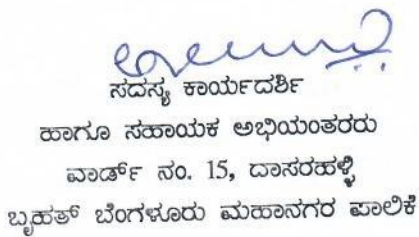 ಸದಸ್ಯ ಕಾರ್ಯದರ್ಶಿ
ಹಾಗೂ ಸಹಾಯಕ ಅಭಿಯಂತರರು
ವಾರ್ಡ್ ನಂ. 15, ದಾಸರಹಳ್ಳಿ
ಬೃಹತ್ ಬೆಂಗಳೂರು ಮಹಾನಗರ ಪಾಲಿಕೆ